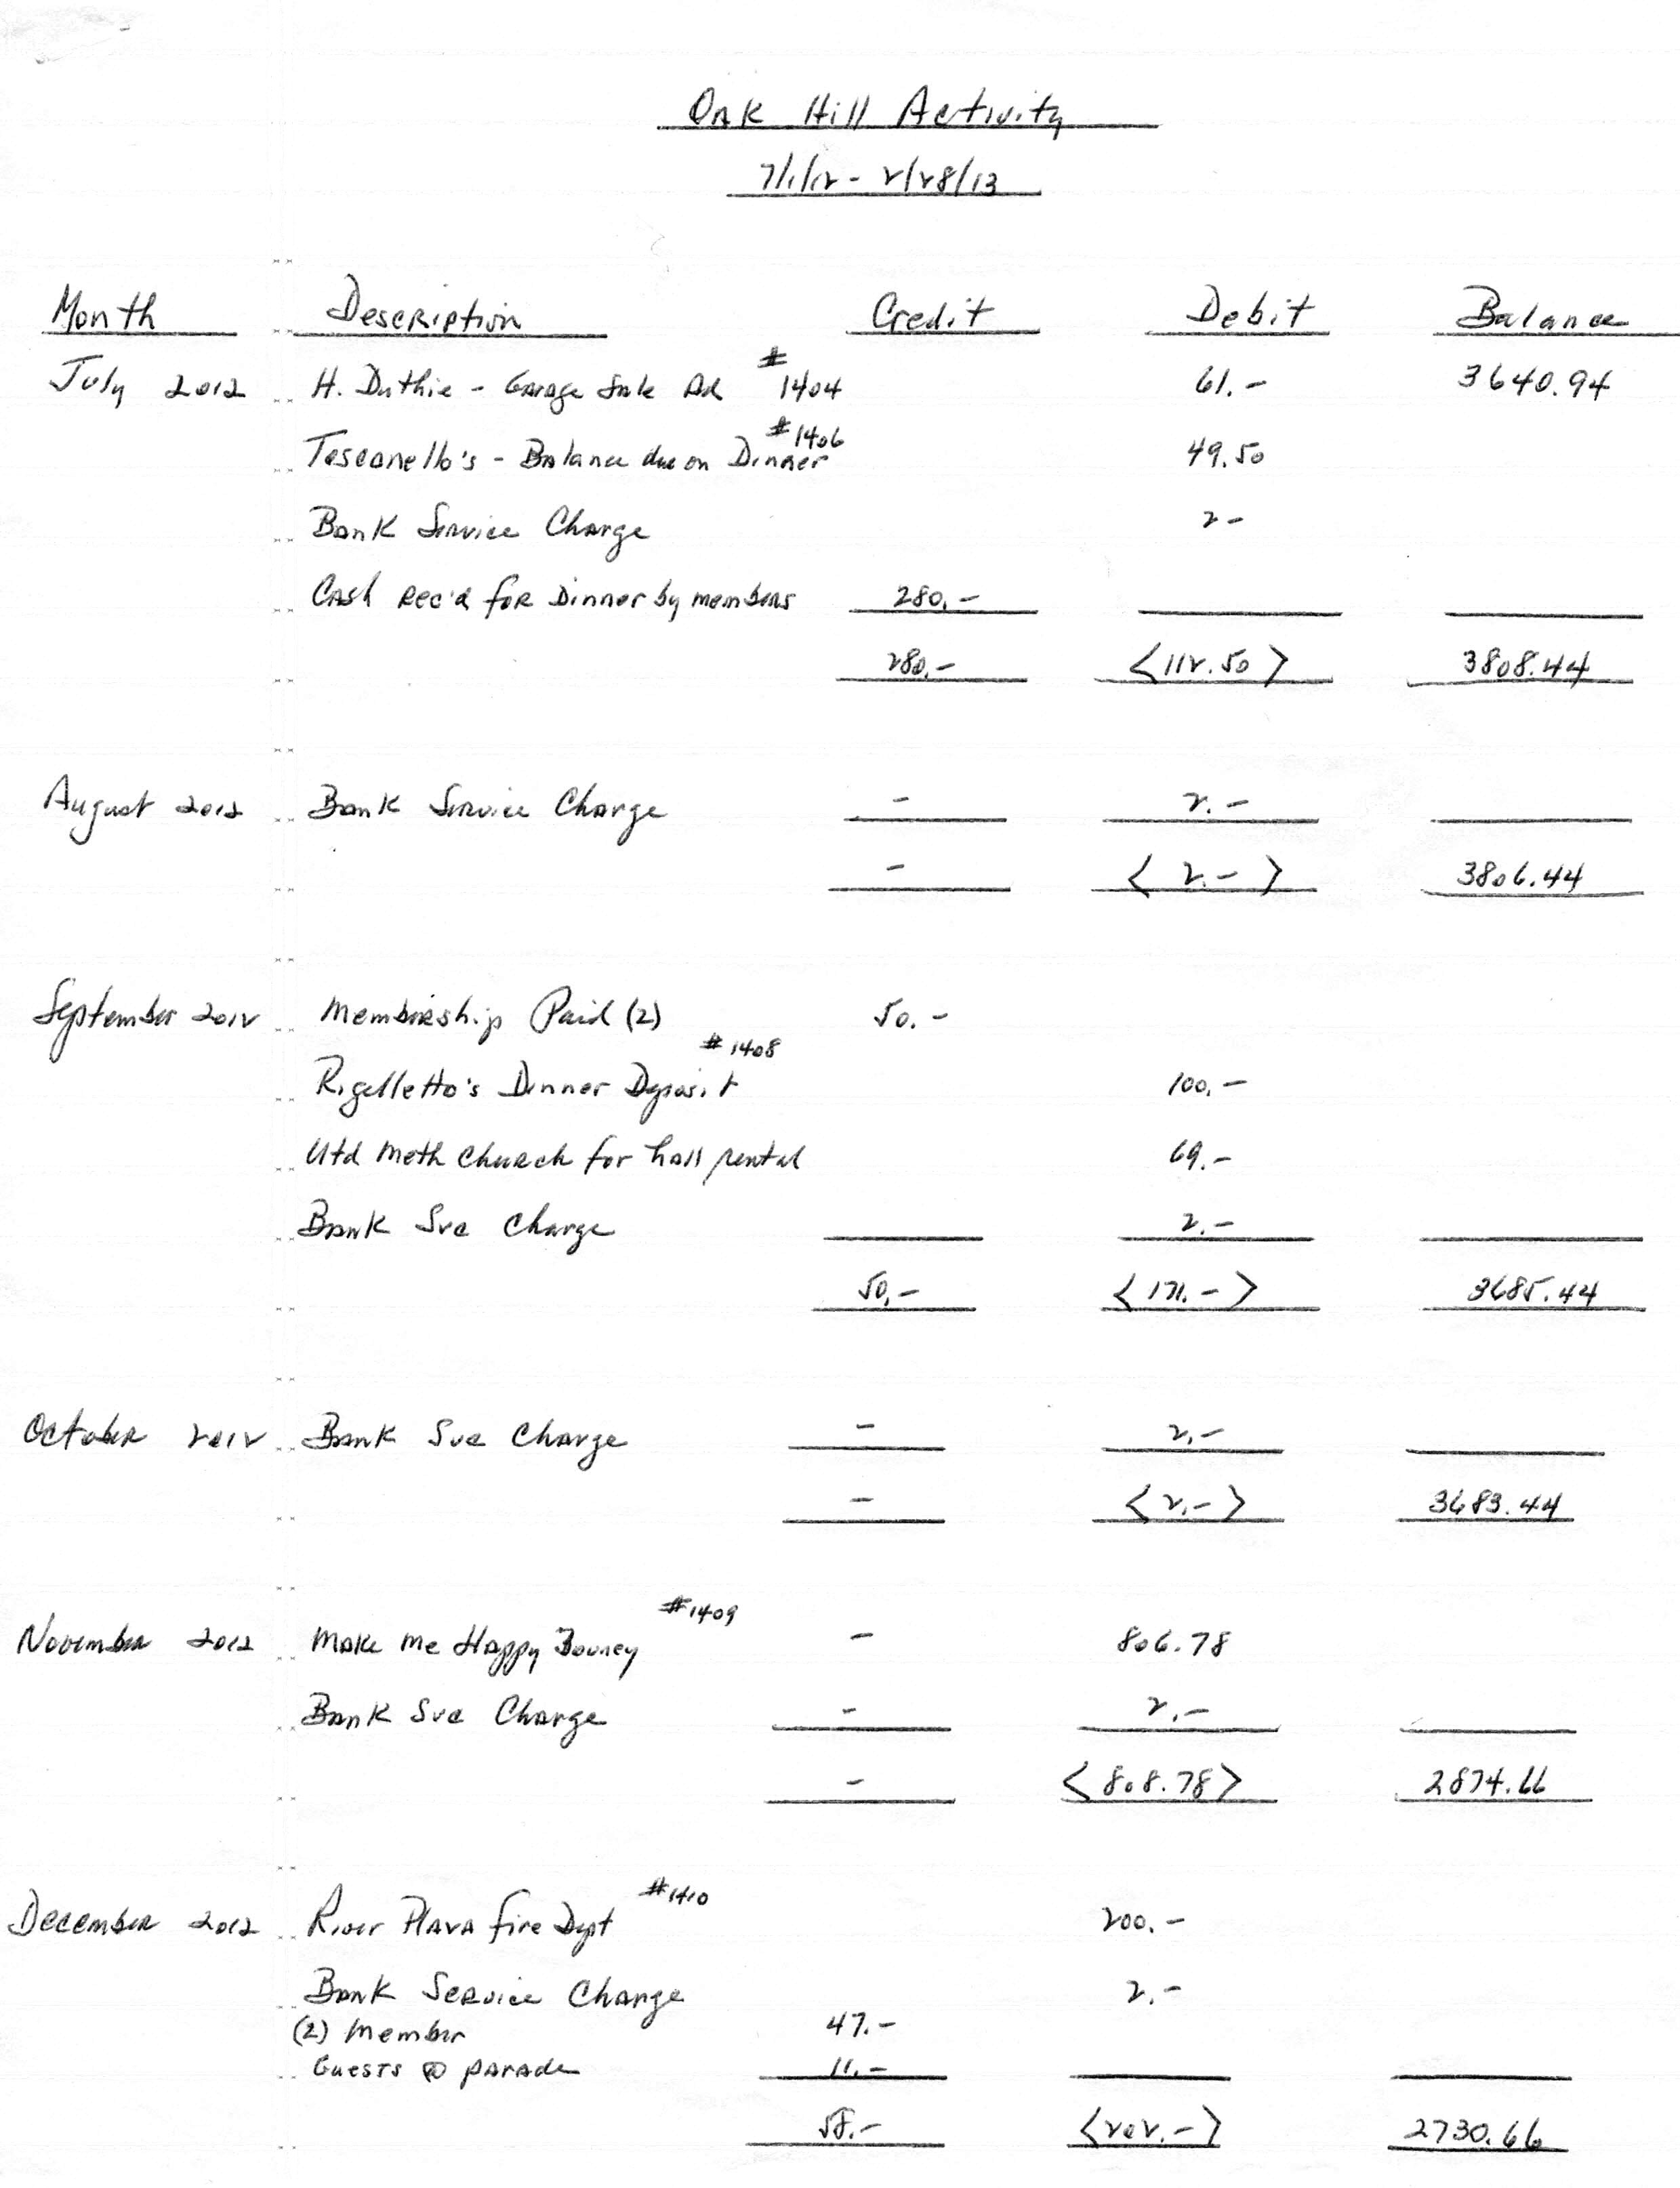 Oak Hill Activity
7/1/12 - 2/28/13
Month Description Credit Debit Balance
July 2012 H. Duthie - Garage Sale Ad #1404 61.- 3640.94
Tosconello's - Balance due on Dinner #1406 49.50
Bank Service Charge 2-
Cash Rec'd for Dinner by members 280.-
280.- <112.50> 3808.44
August 2012 Bank Service Charge - 2.-
- <2.-> 3806.44
September 2012 Membership Paid (2) 50.-
Rigolletto's Dinner Deposit #1408 100.-
Utd Meth Church for hall rental 69.-
Bank Svc Charge 2.-
50.- <171.-> 3685.44
October 2012 Bank Svc Charge - 2.-
- <2.-> 3683.44
November 2012 Make Me Happy Bouncy #1409 - 806.78
Bank Svc Charge - 2.-
- <808.78> 2874.66
December 2012 River Plaza Fire Dept #1410 200.-
Bank Service Charge 2.-
(2) Member 47.-
Guests @ parade 11.-
58.- <202.-> 2730.66